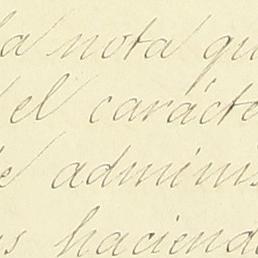 la nota qu
el carácte
de adminis
s haciend